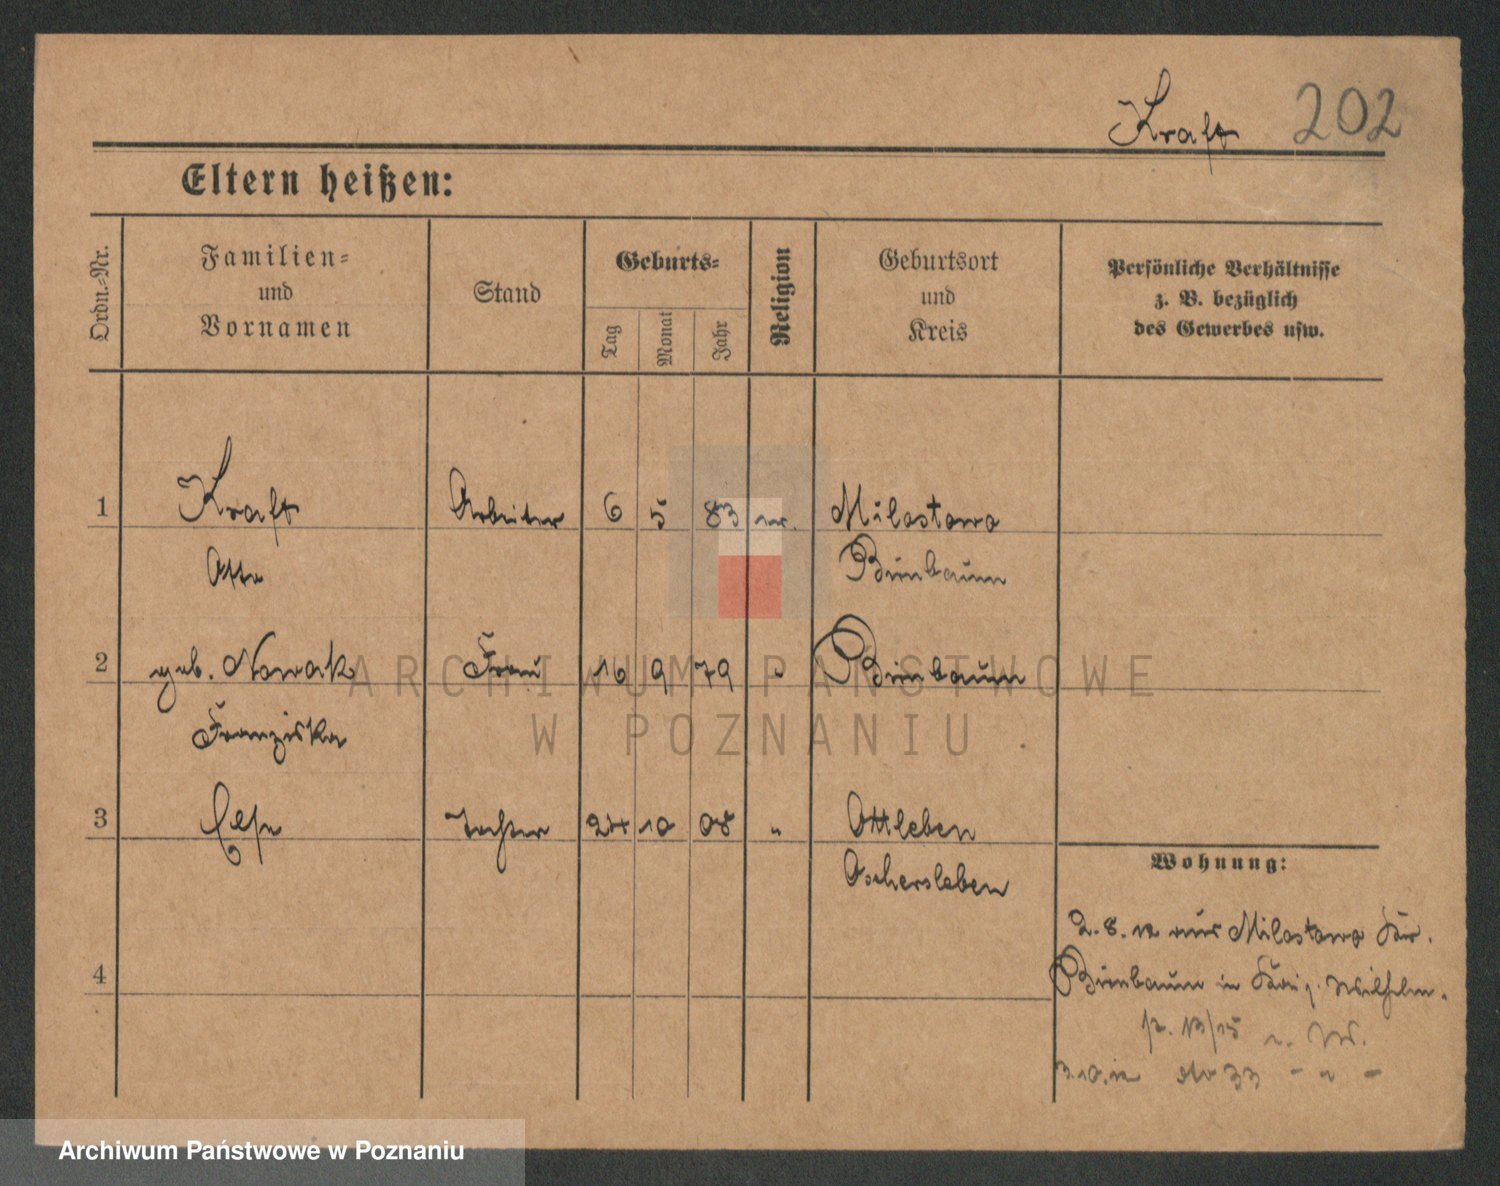 Kraft 202
Eltern heißen:
Ordn.-Nr.
Familien-
und
Vornamen
Stand
Geburts-
Tag
Monat
Jahr
Religion
Geburtsort
und
Kreis
Persönliche Verhältnisse
z. B. bezüglich
des Gewerbes usw.
1 Kraft Arbeiter 6 5 83 Milostowo
Otto Birnbaum
2 geb. Nowak Frau 16 9 79 " Birnbaum
Franziska
3 Else Tochter 24 10 08 " Ottleben
Oschersleben
Wohnung:
2.8.12 aus Milostowo Kr.
Birnbaum in Wilhelm
4
3.10.12 33 - " -
ARCHIWUM PAŃSTWOWE
W POZNANIU
Archiwum Państwowe w Poznaniu